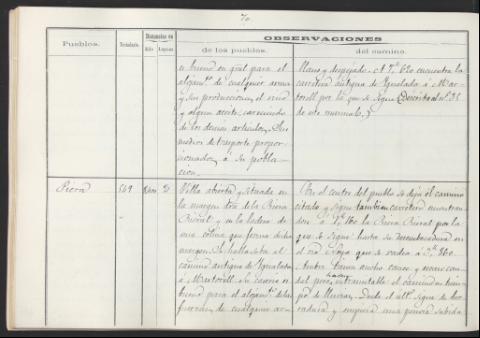 70
Pueblos.
Vecindario.
Distancias en
Kilo
Leguas
OBSERVACIONES
de los pueblos.
del camino.
es bueno en gral para el
de cualquier arma
y sus producciones, el vino
y algun aceite, careciendo
de los demas articulos. Sus
medios de trasporte propor-
cionados a su pobla-
cion.
llano y despejado. A 7,K 620 encuentra la
carretera antigua de Igualada a Mar-
torell por la que se sigue (Descrito al nº 35
de este manual.)
Piera
569
Villa abierta y situada en
la margen dra de la Riera
y en la ladera de
una colina que forma dicha
margen. Se halla sobre el
camino antiguo de Igualada
a Martorell. Su caserio es
bueno para el de las
fuerzas, de cualquier ar-
En el centro del pueblo se deja el camino
citado y sigue tambien carretero encontran
dose a 2,K 160 la Riera por la
que se sigue hasta su desembocadura en
el rio Noya que se vadea a 3,K 860.
Ambos tienen mucho cauce y escaso cau-
dal pero, hacen intransitable el camino en tiem-
po de lluvias. Desde el se sigue de her-
radura y empieza una penosa subida